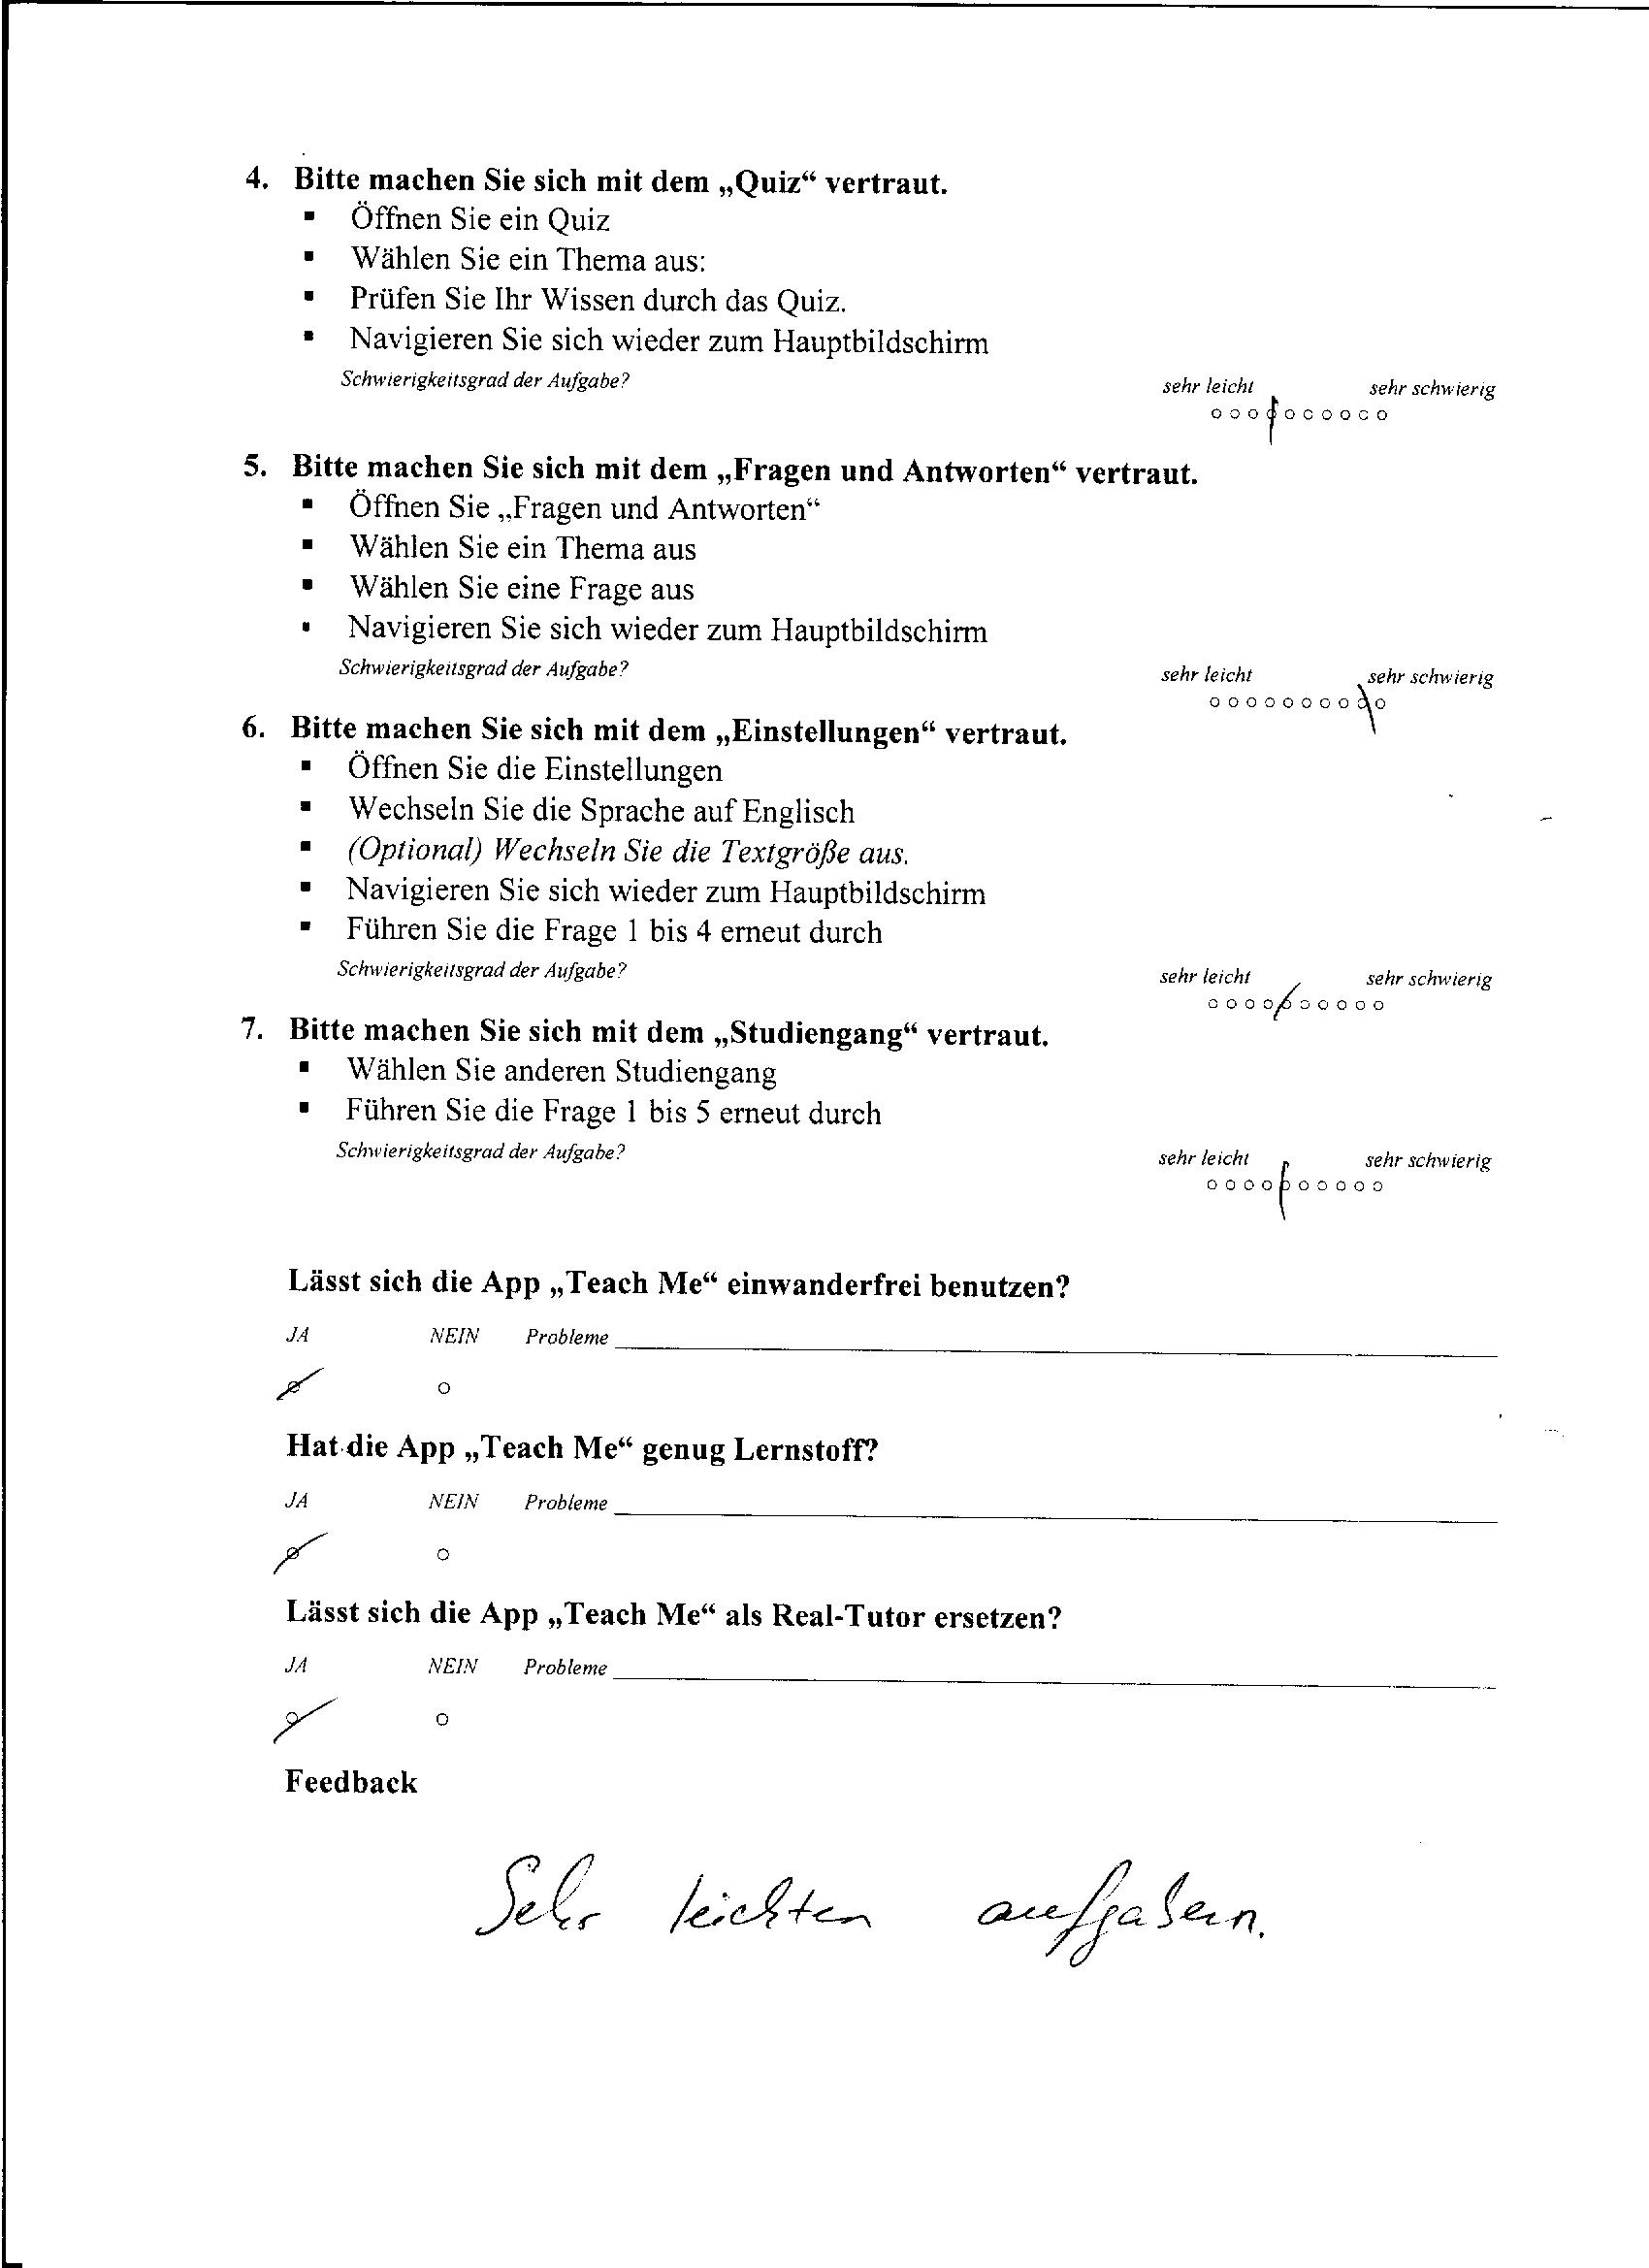 4. Bitte machen Sie sich mit dem „Quiz“ vertraut.
▪ Öffnen Sie ein Quiz
▪ Wählen Sie ein Thema aus:
▪ Prüfen Sie Ihr Wissen durch das Quiz.
▪ Navigieren Sie sich wieder zum Hauptbildschirm
Schwierigkeitsgrad der Aufgabe? sehr leicht sehr schwierig
5. Bitte machen Sie sich mit dem „Fragen und Antworten“ vertraut.
▪ Öffnen Sie „Fragen und Antworten“
▪ Wählen Sie ein Thema aus
▪ Wählen Sie eine Frage aus
▪ Navigieren Sie sich wieder zum Hauptbildschirm
Schwierigkeitsgrad der Aufgabe? sehr leicht sehr schwierig
6. Bitte machen Sie sich mit dem „Einstellungen“ vertraut.
▪ Öffnen Sie die Einstellungen
▪ Wechseln Sie die Sprache auf Englisch
▪ (Optional) Wechseln Sie die Textgröße aus.
▪ Navigieren Sie sich wieder zum Hauptbildschirm
▪ Führen Sie die Frage 1 bis 4 erneut durch
Schwierigkeitsgrad der Aufgabe? sehr leicht sehr schwierig
7. Bitte machen Sie sich mit dem „Studiengang“ vertraut.
▪ Wählen Sie anderen Studiengang
▪ Führen Sie die Frage 1 bis 5 erneut durch
Schwierigkeitsgrad der Aufgabe? sehr leicht sehr schwierig
Lässt sich die App „Teach Me“ einwanderfrei benutzen?
JA NEIN Probleme
Hat die App „Teach Me“ genug Lernstoff?
JA NEIN Probleme
Lässt sich die App „Teach Me“ als Real-Tutor ersetzen?
JA NEIN Probleme
Feedback
Sehr leichten aufgaben.